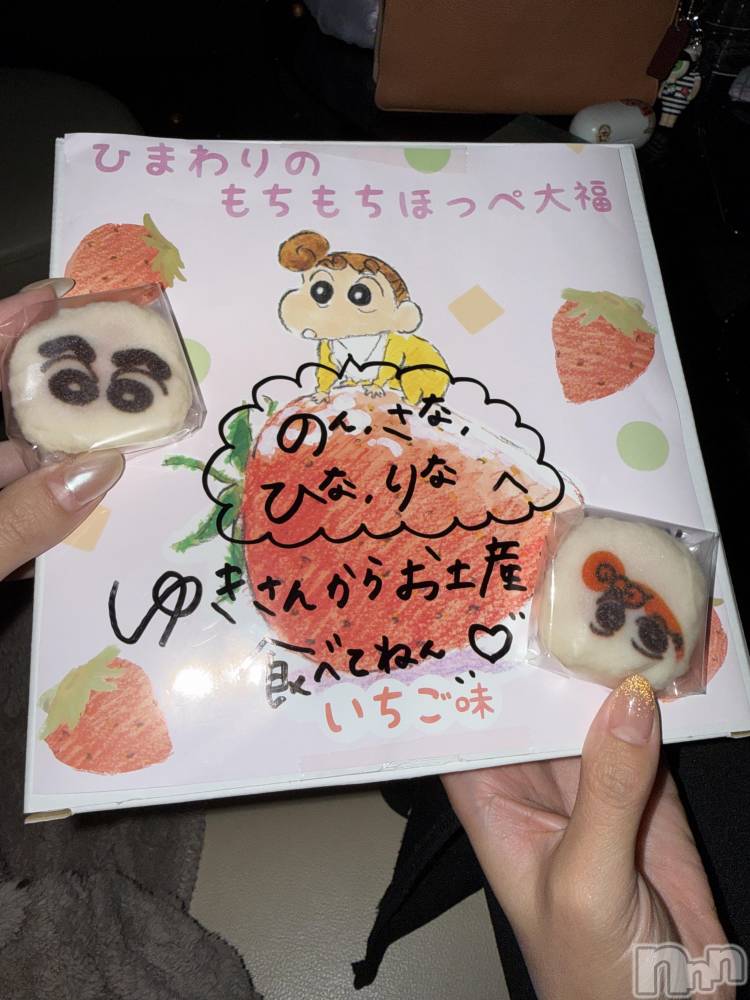 ひまわりの
もちもちほっぺ大福
のん、さな、
ひな、りな へ
ゆきさんからお土産
食べてねん♡
いちご味
nnn